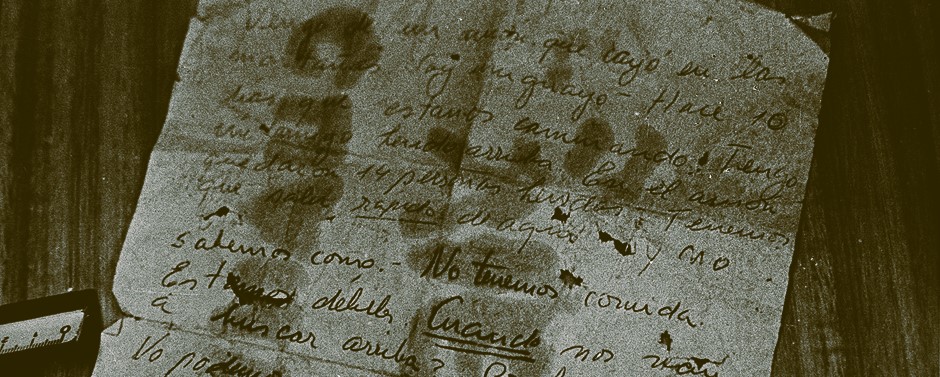 Vengo de un avión que cayó en las
montañas Soy uruguayo - Hace 10
dias que estamos caminando. Tengo
un amigo herido arriba En el avión
quedaron 14 personas heridas. Tenemos
que salir rapido de aqui y no
sabemos como. - No tenemos comida.
Estamos debiles. Cuando nos van
a buscar arriba?
No podemos